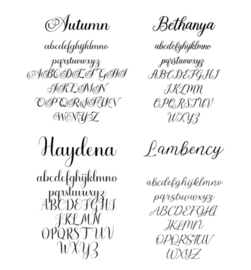 Autumn
abcdefghijklmno
pqrstuvwxyz
ABCDEFGHI
JKLMN
OPQRSTUV
WXYZ
Bethanya
abcdefghijklmno
pqrstuvwxyz
ABCDEFGHI
JKLMN
OPQRSTUV
WXYZ
Haydena
abcdefghijklmno
pqrstuvwxyz
ABCDEFGHI
JKLMN
OPQRSTUV
WXYZ
Lambency
abcdefghijklmno
pqrstuvwxyz
ABCDEFGHI
JKLMN
OPQRSTUV
WXYZ